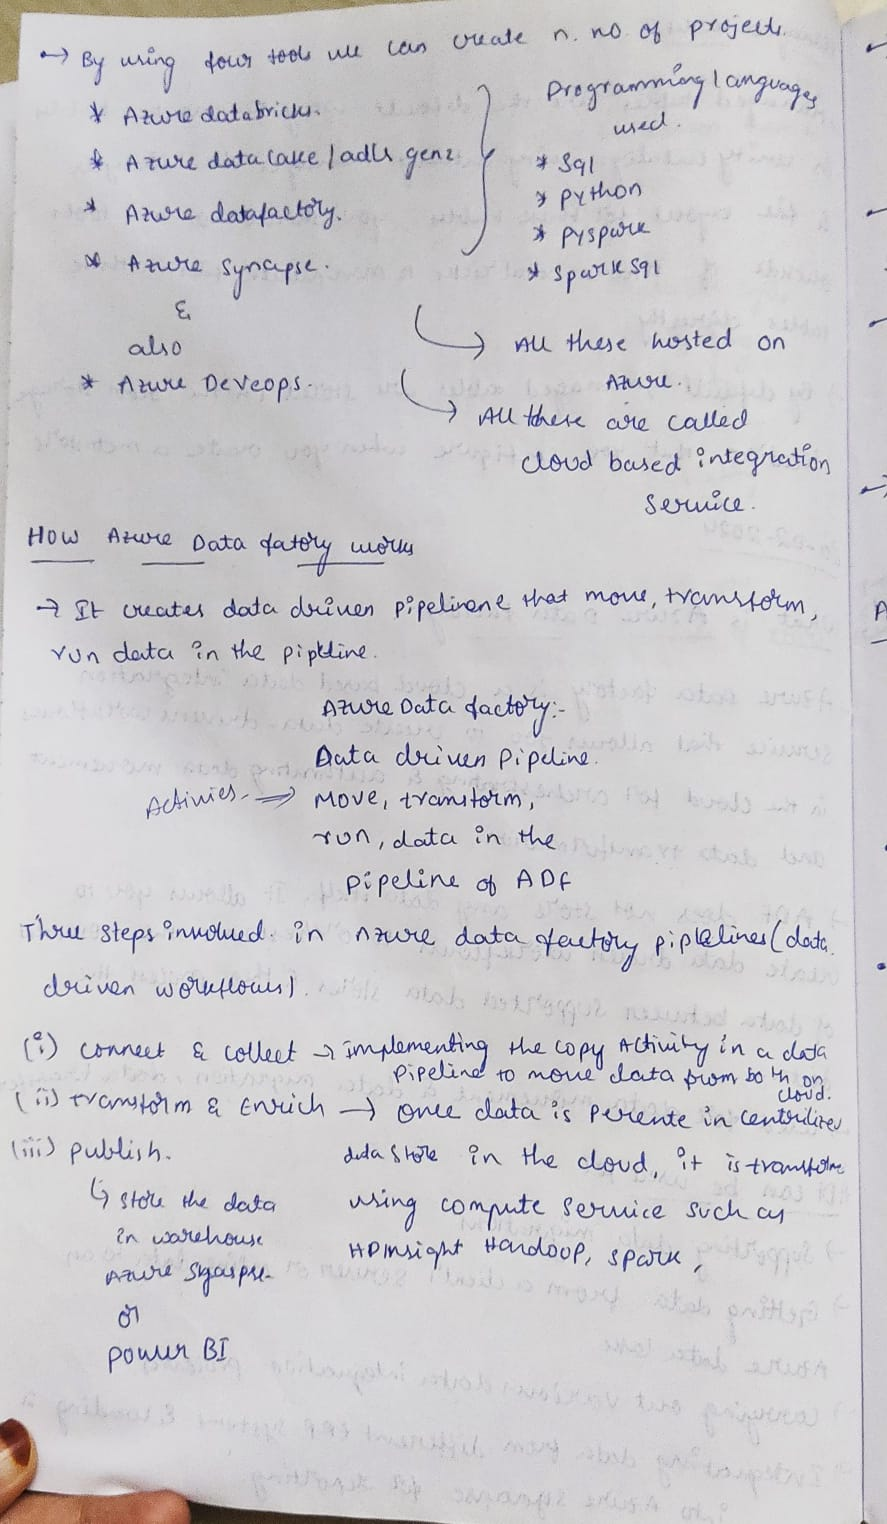 → By using four tools we can create n. no. of projects.
* Azure databricks.
* Azure data lake / adls gen2
* Azure datafactory.
* Azure Synapse.
&
also
* Azure Deveops.
Programming languages
used.
* Sql
* Python
* Pyspark
* Spark sql
→ All these hosted on
Azure.
→ All these are called
cloud based integration
service.
How Azure Data fatory works
→ It creates data driven pipelinene that move, transform,
run data in the pipeline.
Azure Data factory:-
Data driven pipeline.
Activies → Move, transform,
run, data in the
pipeline of ADF
Three steps involved in Azure data factory piplelines (data
driven workflows).
(i) connect & collect → implementing the copy Activity in a data
pipeline to move data from both on
cloud.
(ii) transform & Enrich → once data is in centrilized
data store in the cloud, it is transform
using compute service such as
HDInsight Handoop, spark,
(iii) publish.
↳ store the data
in warehouse
Azure
or
power BI